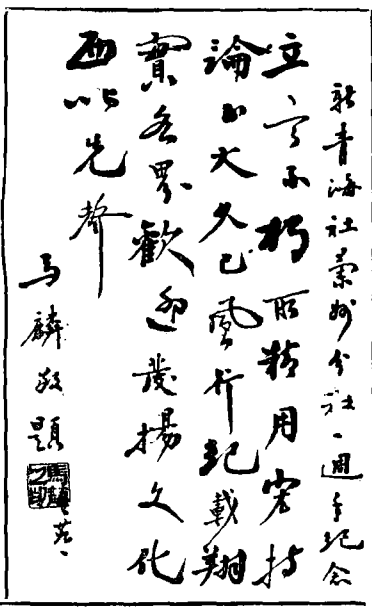 新青海社蘭州分社一週年紀念
立言不朽取精用宏持
論正大久已風行紀載翔
實各界歡迎發揚文化
西北先聲
馬麟敬題